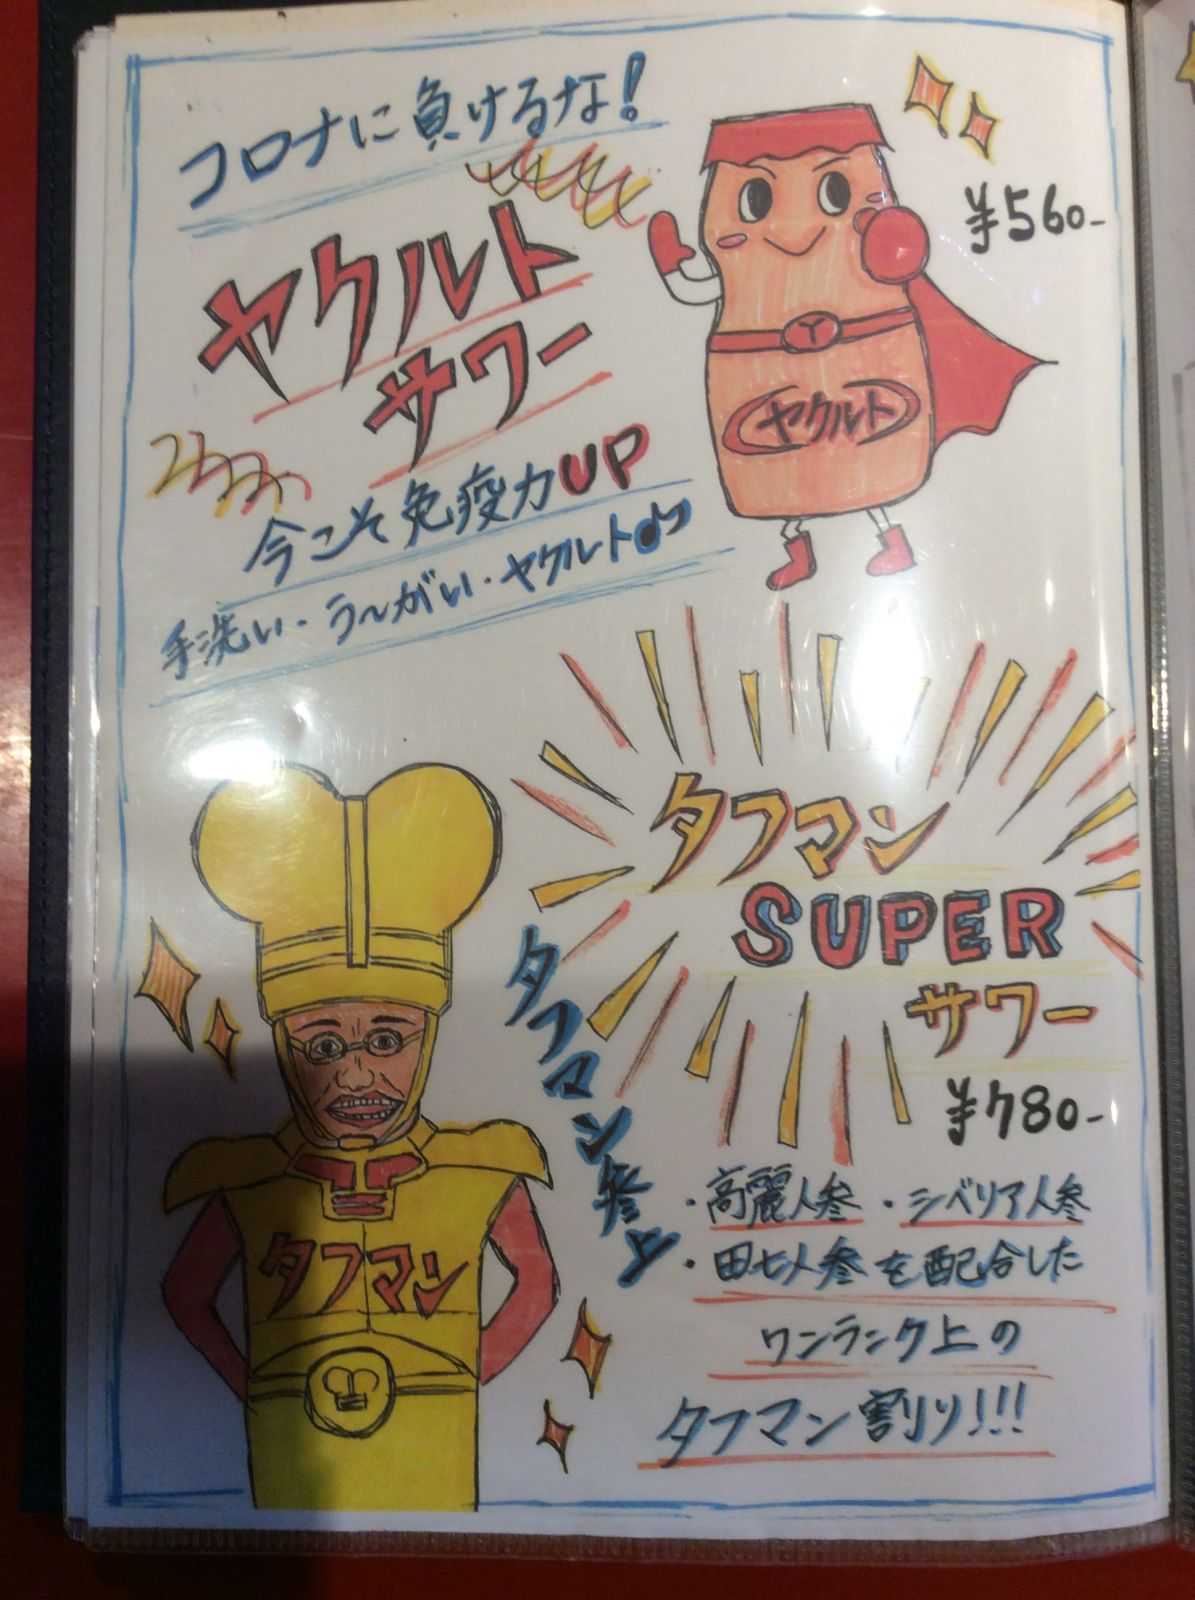 コロナに負けるな!
¥560-
ヤクルト
サワー
Y
ヤクルト
今こそ免疫力UP
手洗い・う〜がい・ヤクルト♪
タフマン
SUPER
サワー
¥780-
タフマン参上
タフマン
・高麗人参・シベリア人参
・田七人参を配合した
ワンランク上の
タフマン割り!!!